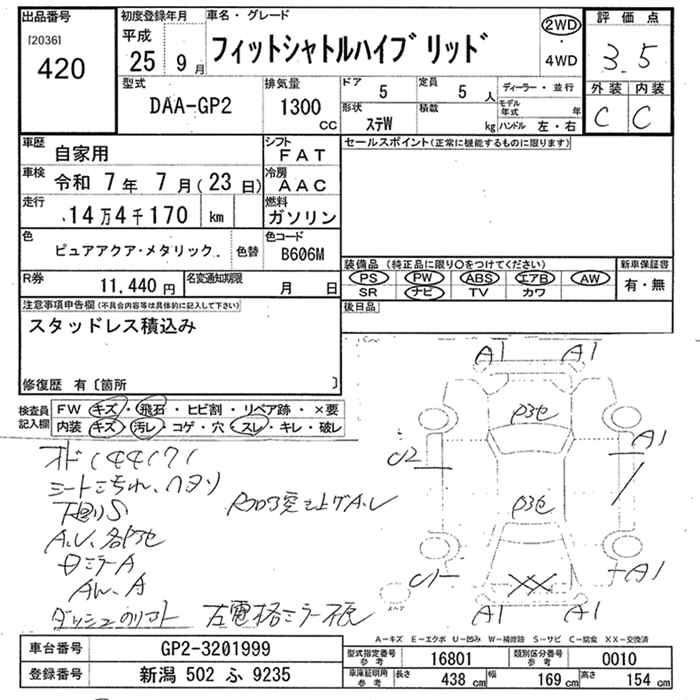 出品番号
[2036]
420
初度登録年月
平成
25 9月
車名・グレード
フィットシャトルハイブリッド
2WD
・
4WD
評価点
3.5
外装 内装
C C
型式
DAA-GP2
排気量
1300
CC
ドア
5
定員
5人
形状
ステW
積載
kg
ディーラー・並行
モデル年式 年
ハンドル 左・右
車歴
自家用
シフト
FAT
車検
令和 7年 7月(23日)
冷房
AAC
走行
14万4千170 km
燃料
ガソリン
色
ピュアアクア・メタリック
色替
色コード
B606M
R券
11,440円
名変通知期限
月 日
セールスポイント(正常に機能するものに限ります)
装備品(純正品に限り○をつけてください)
PS PW ABS エアB AW
SR ナビ TV カワ
新車保証書
有・無
後日品
注意事項申告欄(不具合内容等は具体的に記入して下さい)
スタッドレス積込み
修復歴 有〔箇所 〕
検査員
記入欄
FW キズ・飛石・ヒビ割・リペア跡・×要
内装 キズ・汚レ・コゲ・穴・スレ・キレ・破レ
オド144171
シートこぢれ、ヘタリ
下回りS
A.U、各
ミラーA
ダッシュ
左電格ミラー
突上げA.U
A1 A1
U2
A1
U1
A1
A1 A1
A-キズ E-エクボ U-凹み W-補修跡 S-サビ C-腐食 XX-交換済
車台番号
GP2-3201999
登録番号
新潟 502 ふ 9235
型式指定番号
参考
16801
類別区分番号
参考
0010
車庫証明用
参考
長さ
438 cm
幅
169 cm
高さ
154 cm